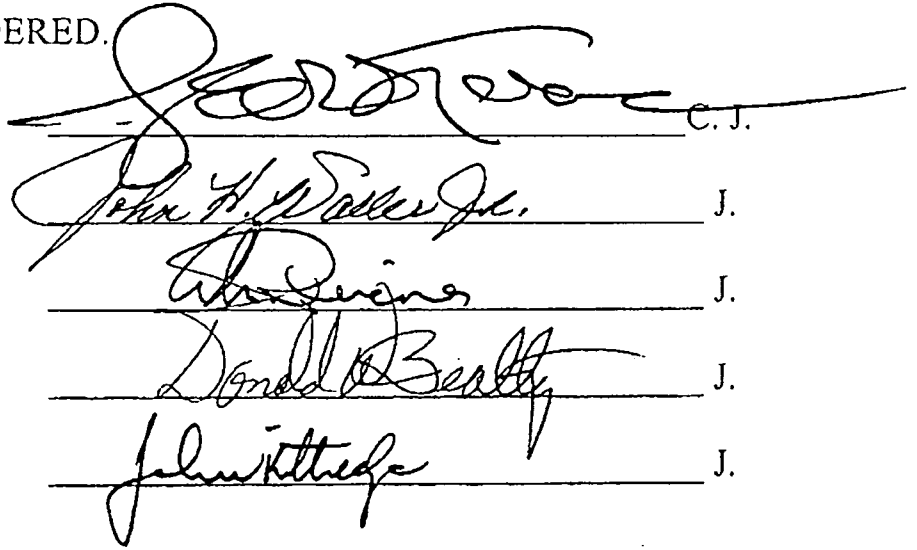 DERED.
C. J.
John H. Waller Jr. J.
J.
Donald W Beatty J.
John Kittredge J.